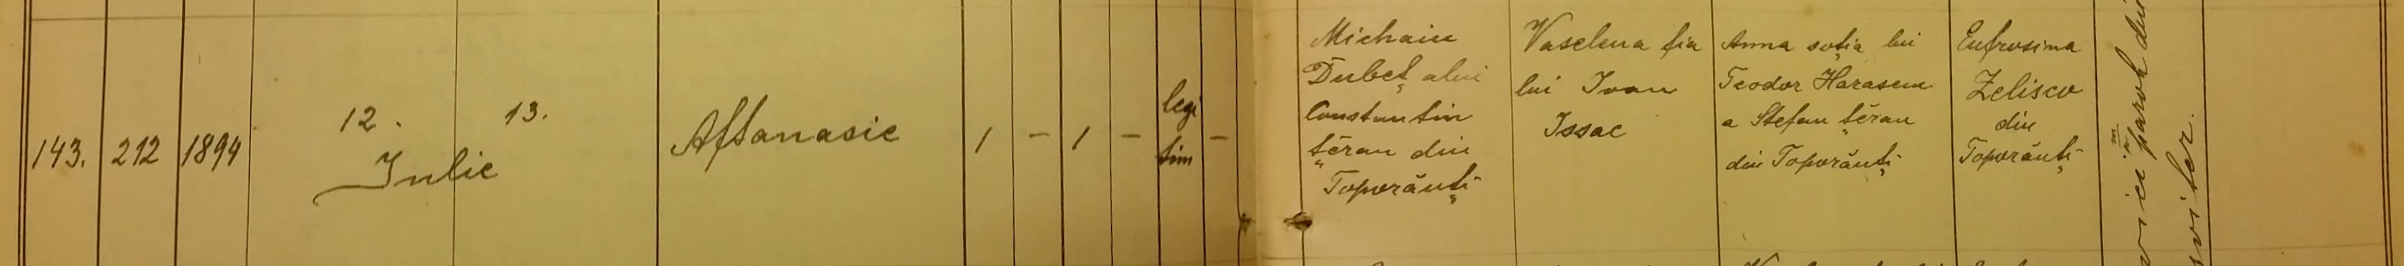 143.
212
1894
12. 13.
Iulie
Aftanasie
1
–
1
–
legi
tim
–
Michaiu
Dubeț alui
Constantin
țĕran din
Toporăuți
Vaselena fia
lui Ivan
Issac
Anna soția lui
Teodor Harasem
a Stefan țĕran
din Toporăuți
Eufrosina
Zelisco
din
Toporăuți
vici paroh din